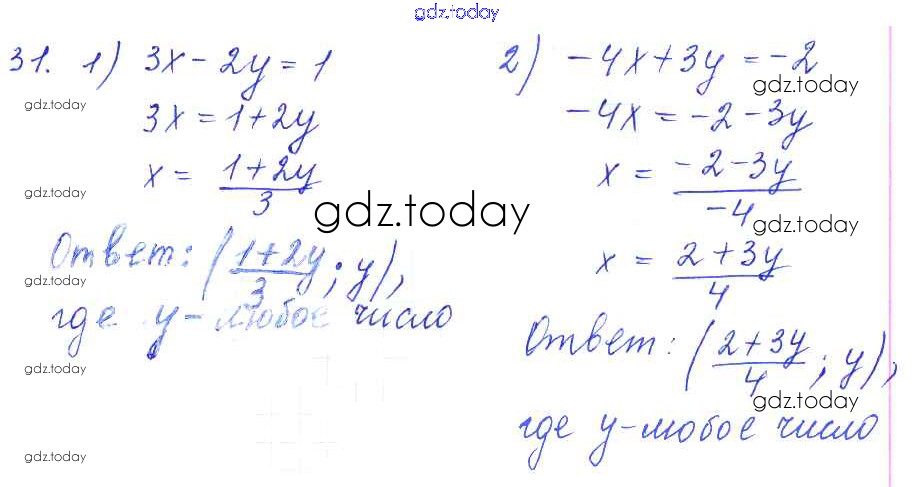 gdz.today
31. 1) 3x - 2y = 1
3x = 1 + 2y
x = (1 + 2y)/3
Ответ: ((1 + 2y)/3; y),
где y - любое число
2) -4x + 3y = -2
-4x = -2 - 3y
x = (-2 - 3y)/(-4)
x = (2 + 3y)/4
Ответ: ((2 + 3y)/4; y),
где y - любое число
gdz.today
gdz.today
gdz.today
gdz.today
gdz.today
gdz.today
gdz.today
gdz.today
gdz.today